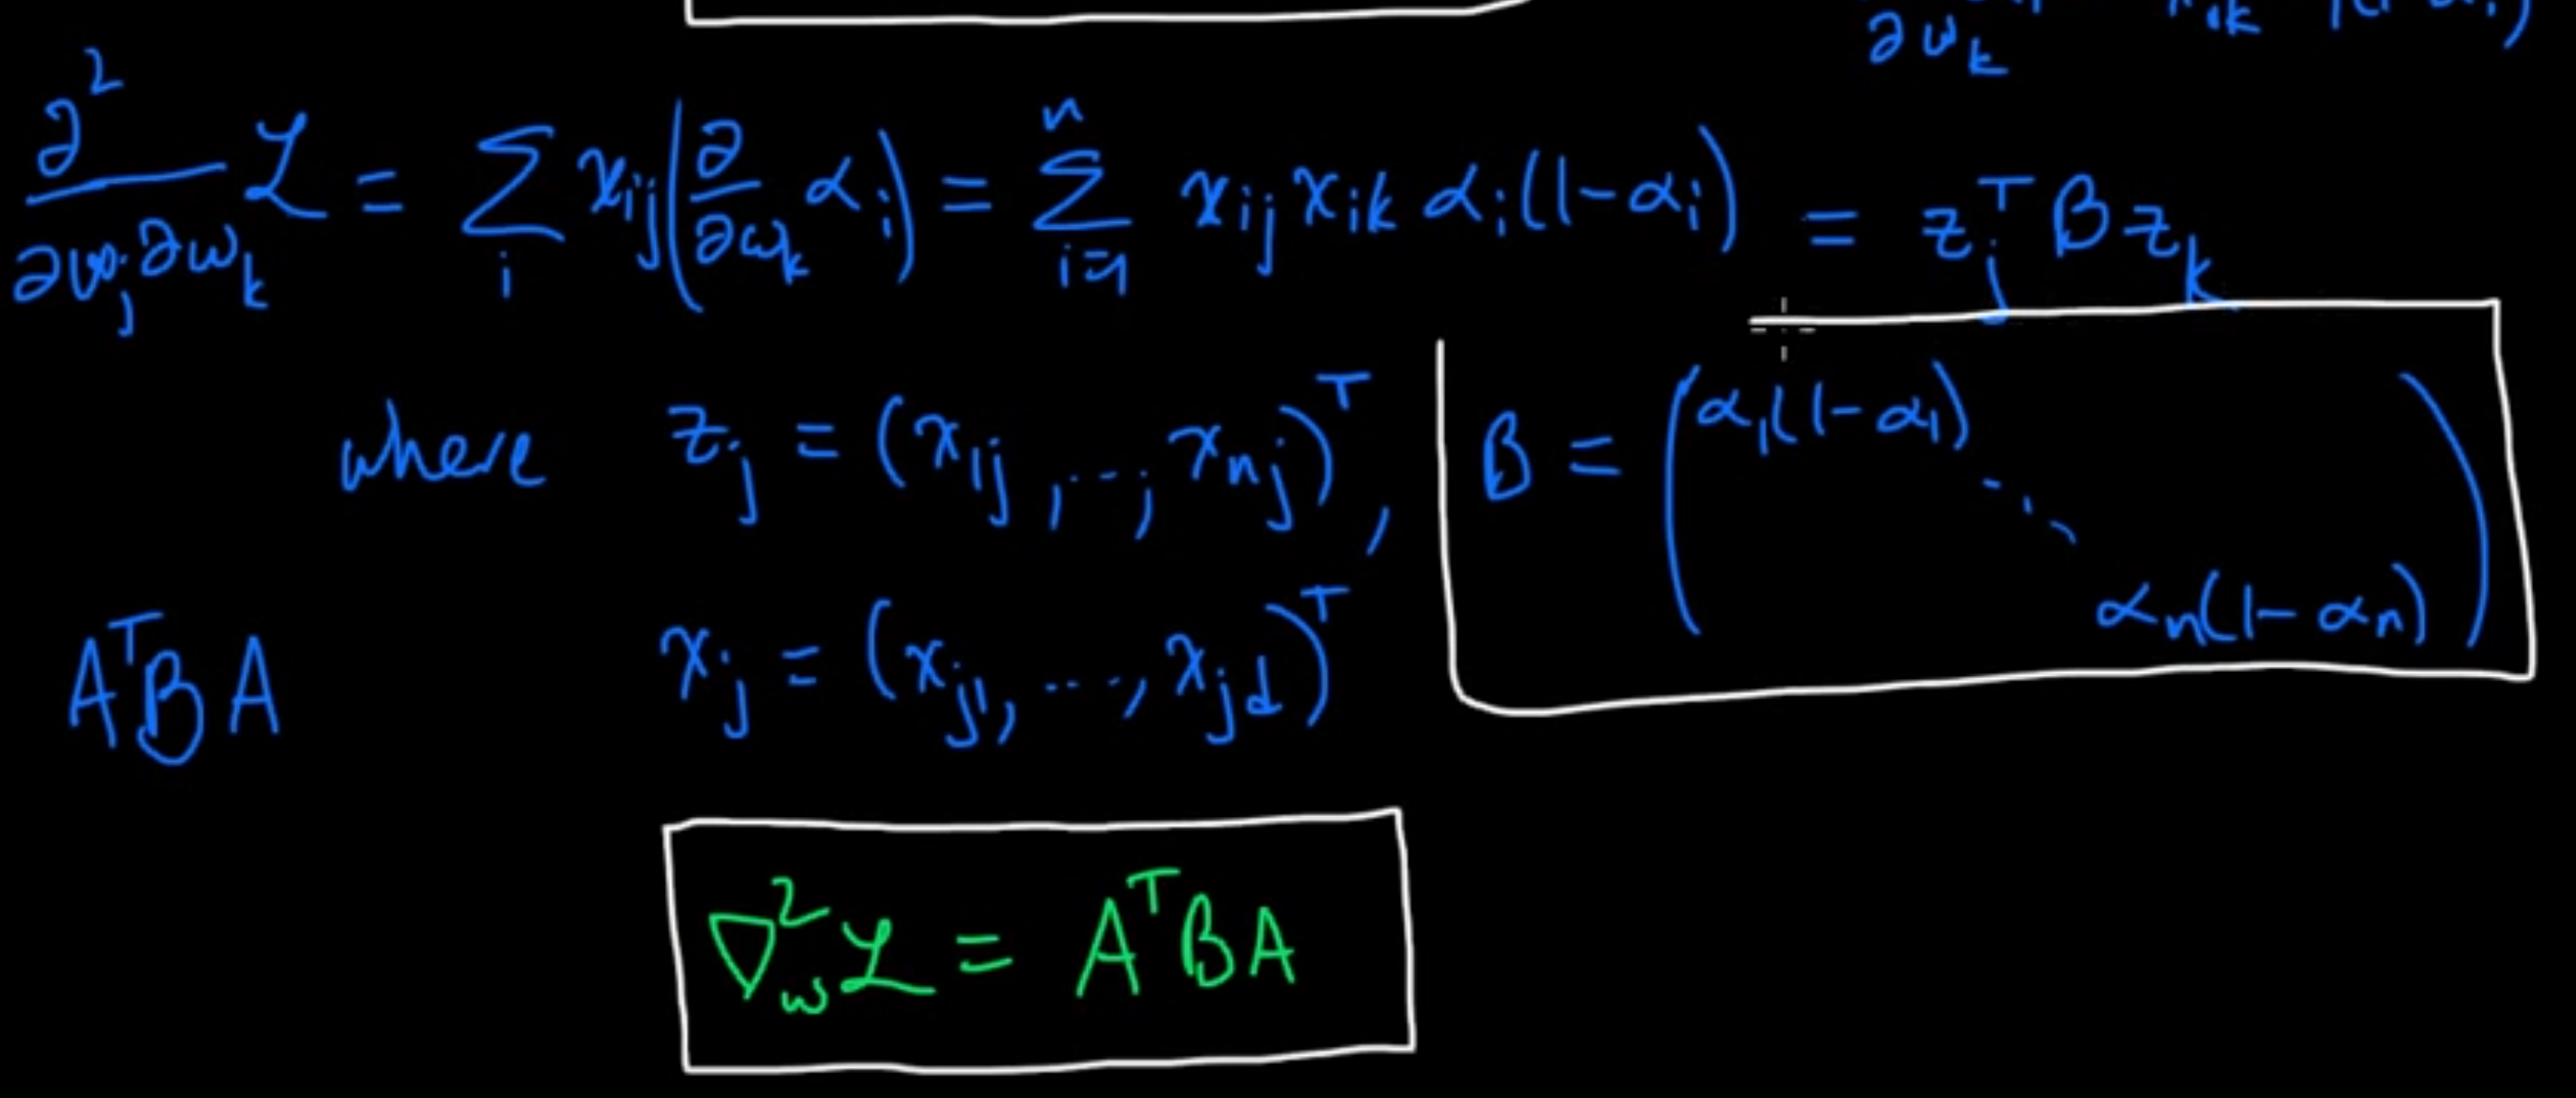 ∂/∂w_k x_ik (1-α_i)
∂²/∂w_j∂w_k ℒ = Σ_i x_ij (∂/∂w_k α_i) = Σ_{i=1}^n x_ij x_ik α_i(1-α_i) = z_j^T B z_k
where z_j = (x_1j, ..., x_nj)^T, B = (α_1(1-α_1) ⋱ α_n(1-α_n))
A^T B A x_j = (x_j1, ..., x_jd)^T
∇²_w ℒ = A^T B A